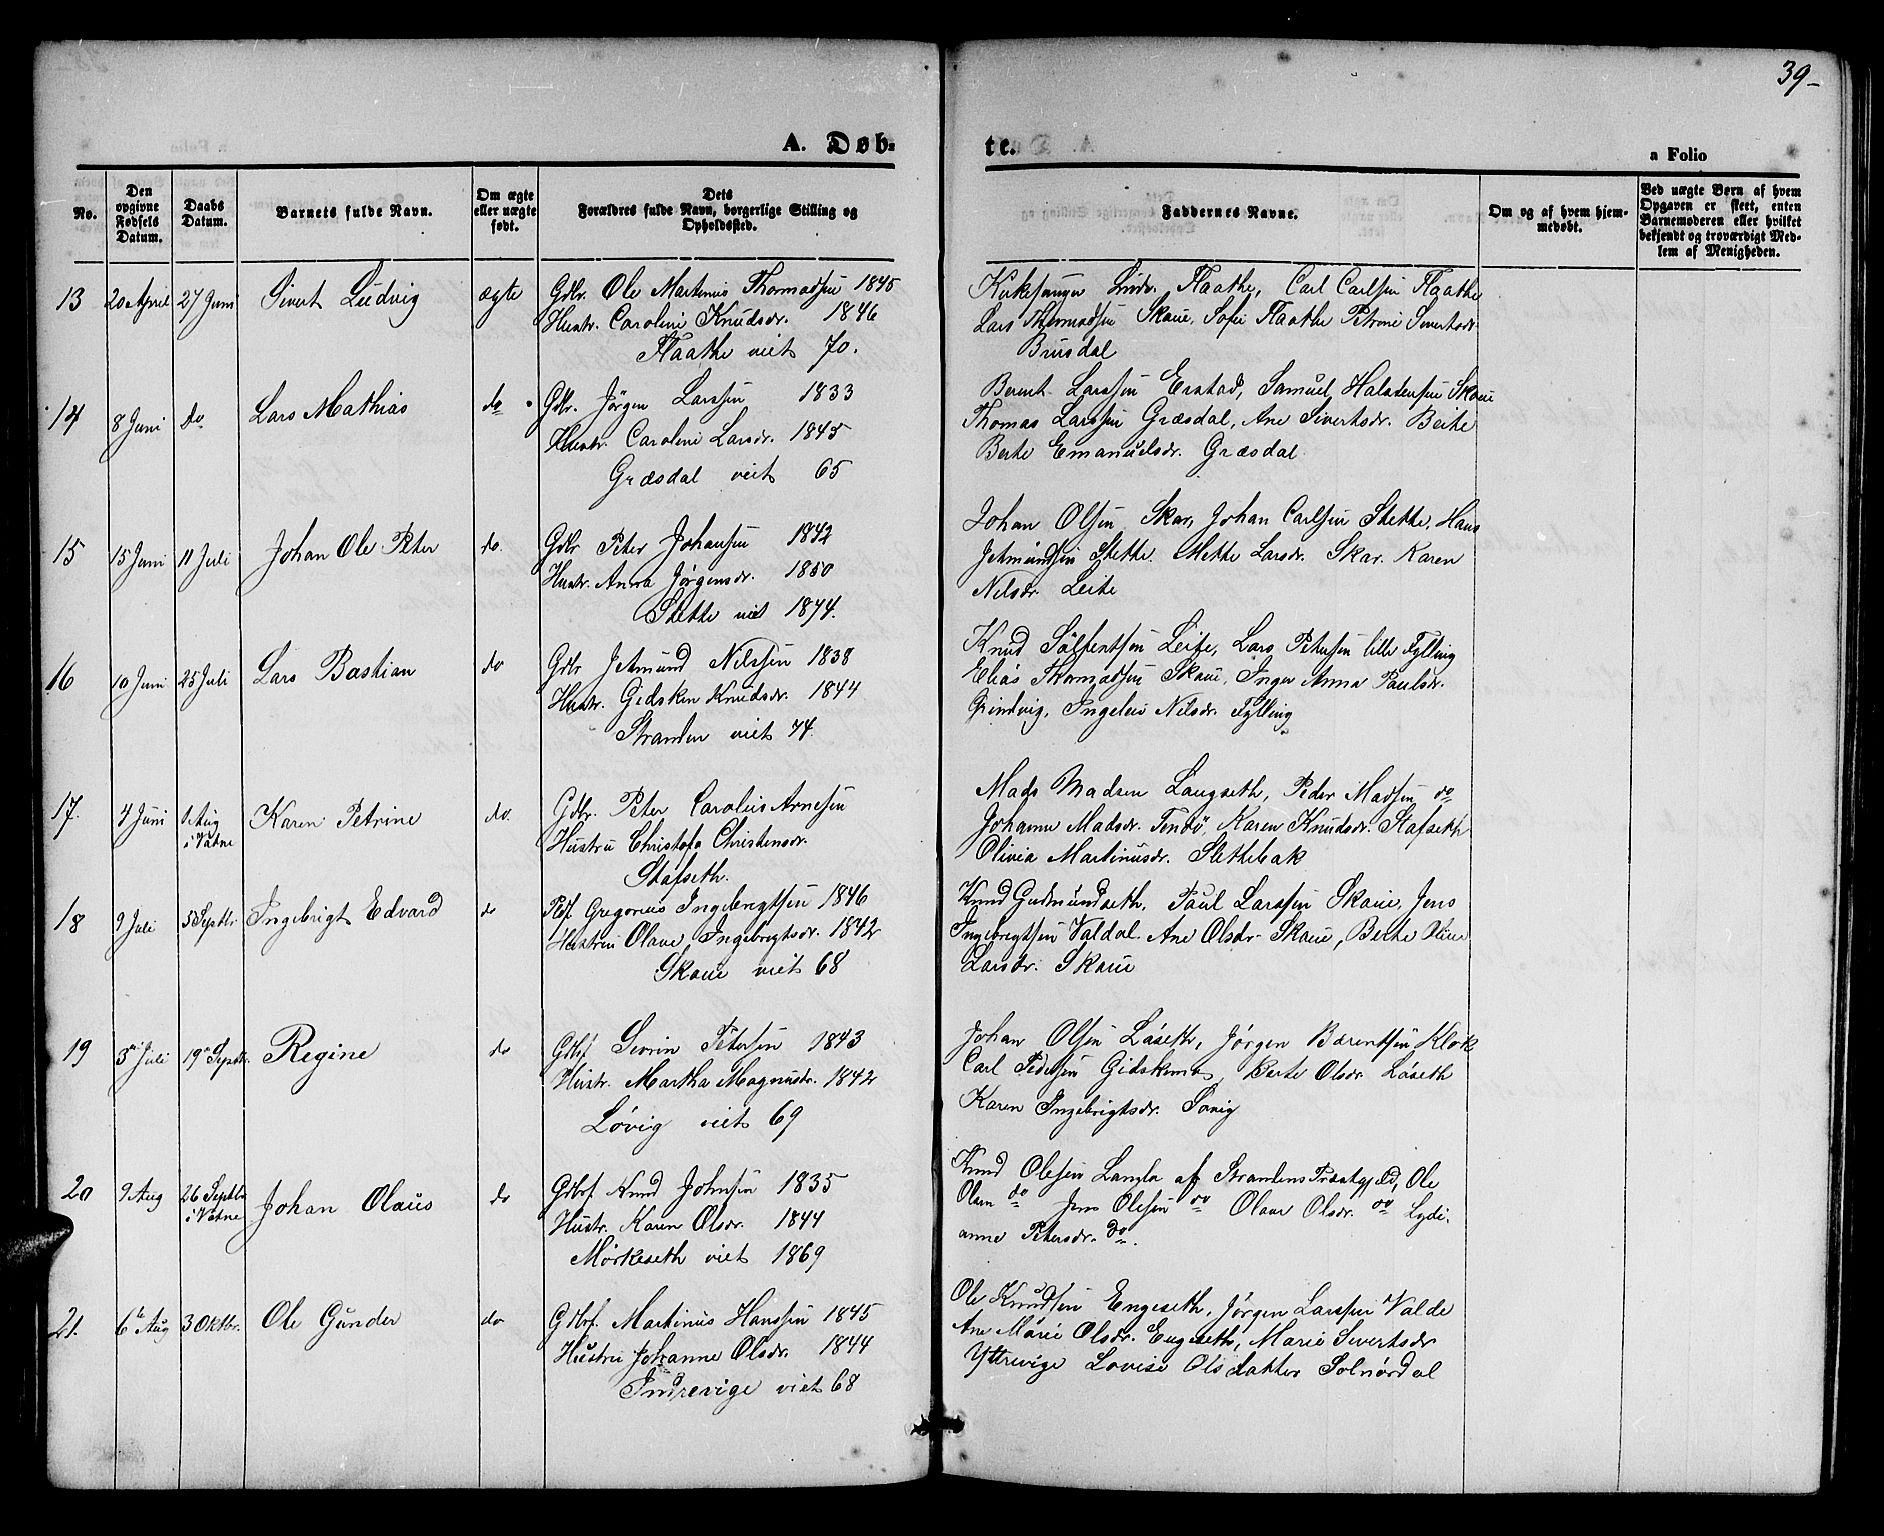 39-
A. Døb-
te.
a Folio
No.
Den
opgivne
Fødsels
Datum.
Daabs
Datum.
Barnets fulde Navn.
Om ægte
eller uægte
født.
Dets
Forældres fulde Navn, borgerlige Stilling og
Opholdssted.
Faddernes Navne.
Om og af hvem hjem-
medøbt.
Ved uægte Børn af hvem
Opgaven er skeet, enten
Barnemoderen eller hvilket
bekjendt og troværdigt Med-
lem af Menigheden.
13 20 April 27 Juni Sivert Ludvig ægte Gdbr. Ole Martinus Thomassen 1845
Hustr. Caroline Knudsdr. 1846
Flaathe viet 70.
Kirkesanger Flaathe, Carl Carlsen Flaathe
Lars Thomassen Skaue, Sofie Flaathe Petrine Sivertsdr.
Brusdal
14 8 Juni do Lars Mathias do Gdbr. Jørgen Larssen 1833
Hustr. Caroline Larsdr. 1845
Græsdal viet 65
Bernt Larssen Erstad, Samuel Halstensen Skaue
Thomas Larssen Græsdal, Ane Sivertsdr. Beite
Berte Emanuelsdr. Græsdal
15 15 Juni 11 Juli Johan Ole Peter do. Gdbr Peter Johansen 1842
Hustr. Anna Jørgensdr. 1850
Stette viet 1874.
Johan Olsen Skar, Johan Carlsen Stette, Hans
Jetmundsen Stette. Mette Larsdr. Skar. Karen
Nilsdr. Leite
16 10 Juni 25 Juli Lars Bastian do Gdbr Jetmund Nilssen 1838
Hustr. Gidsken Knudsdr. 1844
Stranden viet 74.
Knud Sölfentsen Leite, Lars Petersen lille Fylling
Elias Thomassen Skaue, Inger Anna Paulsdr.
Grindvig, Ingeleiv Nilsdr. Fylling
17. 4 Juni 1 Aug
i Vatne Karen Petrine do. Gdbr. Peter Carolus Arnesen
Hustru Christofa Christensdr.
Stafseth.
Mads Madsen Langseth, Peder Madsen do
Johanne Madsdr. Tennö, Karen Knudsdr. Stafseth
Olivia Martinusdr. Slettebak
18 9 Juli 5 Septbr Ingebrigt Edvard do Pdsf. Gregorius Ingebregtsen 1846
Hustru Olave Ingebregtsdr. 1842
Skaue viet 68
Knud Gudmundseth, Paul Larssen Skaue, Jens
Ingebregtsen Valdal. Ane Olsdr. Skaue, Berte Oline
Larsdr. Skaue
19 3 Juli 19 Septbr. Regine do Gdbf. Sevrin Petersen 1843
Hustr. Martha Magnusdr. 1842
Løvig viet 69
Johan Olsen Låseth, Jørgen Bærentsen Klok
Carl Pedersen Gidskenas, Berte Olsdr. Låseth
Karen Ingebrigtsdr. Søvig
20 9 Aug 26 Septbr
i Vatne Johan Olaus do Gdbrf. Knud Johnsen 1835
Hustr. Karen Olsdr. 1844
Mørkeseth viet 1869
Knud Olesen Langlo af Strandens Præstegjeld, Ole
Olsen do Jens Olesen do Olave Olsdr. do Lydi-
anne Petersdr. do.
21. 6te Aug 3 Oktbr. Ole Gunder do Gdbrf. Martinus Hanssen 1845
Hustru Johanne Olsdr. 1844
Indrevige viet 68
Ole Knudsen Engeseth, Jørgen Larssen Valde
Ane Marie Olsdr. Engeseth, Marie Sivertsdr
Yttrevige Lovise Olsdatter Solnørdal